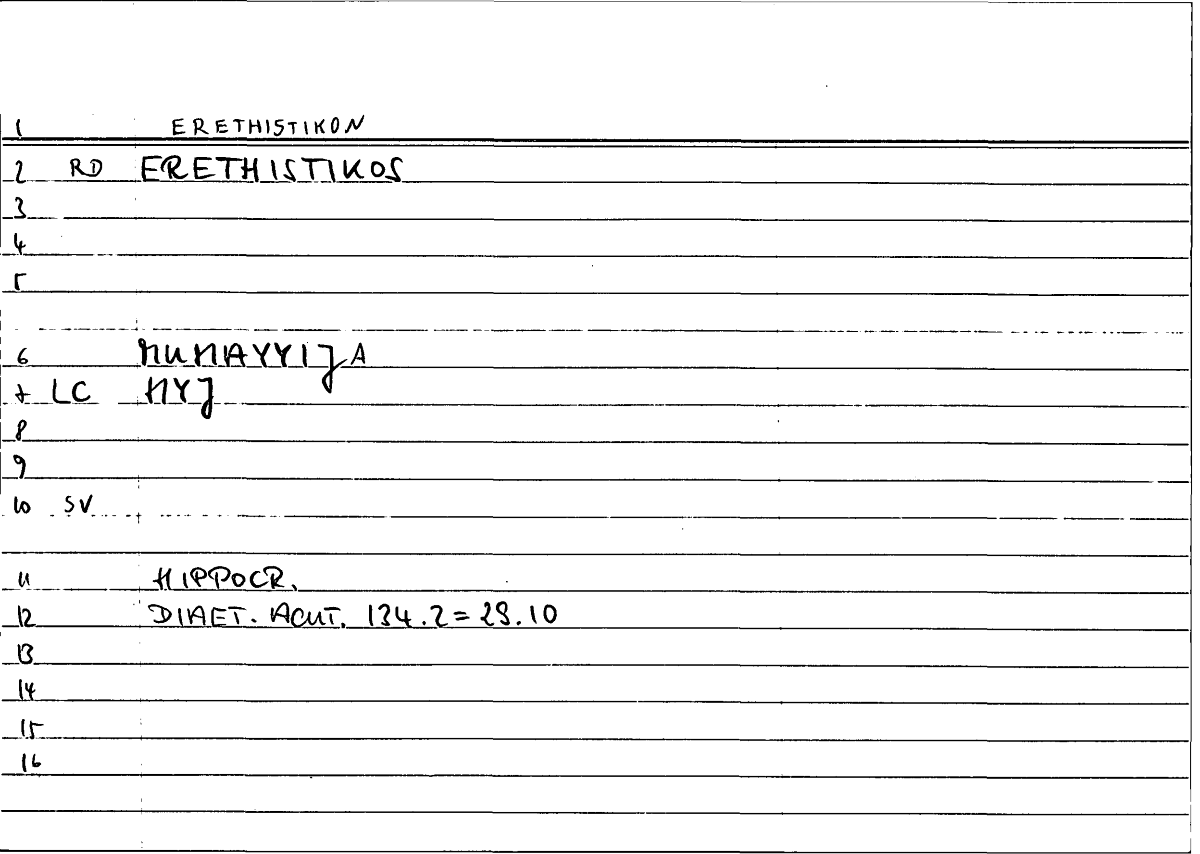 1 ERETHISTIKON
2 RD ERETHISTIKOS
3
4
5
6 MUHAYYIJA
7 LC HYJ
8
9
10 SV
11 HIPPOCR.
12 DIAET. ACUT. 134.2=28.10
13
14
15
16